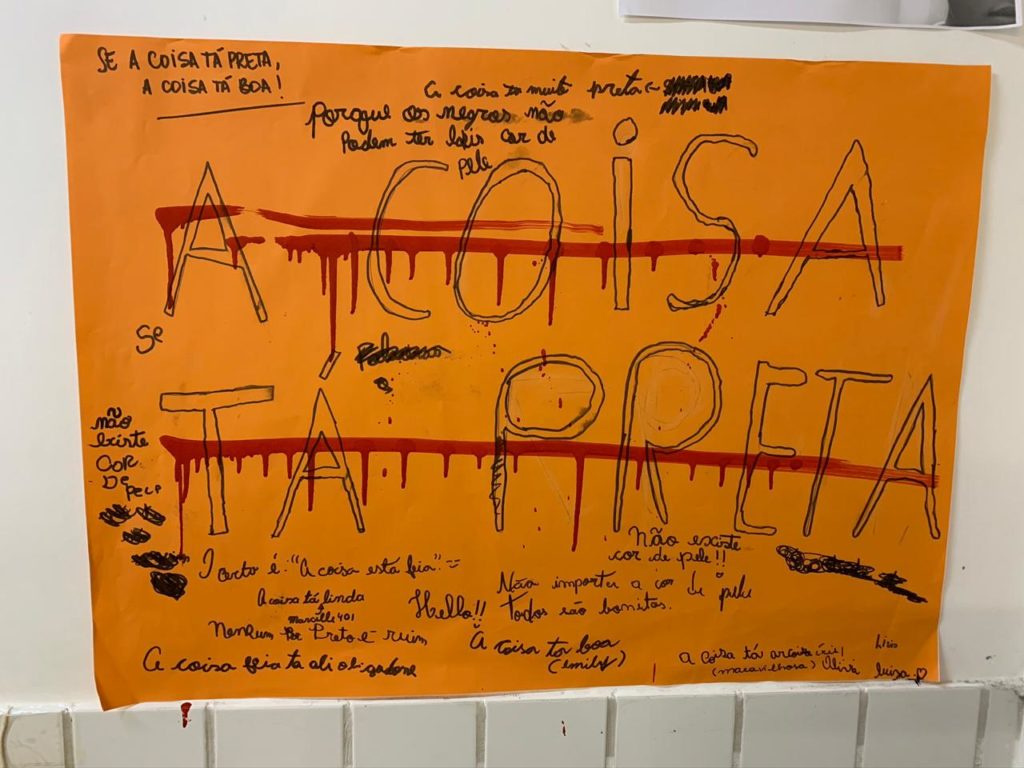 SE A COISA TÁ PRETA,
A COISA TÁ BOA!
A coisa ta muit preta
Porque os negros não
Podem ter lápis cor de
pele
A COISA
Se
TÁ PRETA
não
existe
COR
De
Pele
Não existe
cor de pele!!
O certo é: "A coisa está feia"
Não importa a cor de pele
Todos são bonitos.
A coisa tá linda
Marcelle 401
Hello!!
Nenhum Preto é ruim
A coisa ta boa
(Emily)
A coisa feia ta ali
A coisa tá
(maravilhosa) Olivia
Luisa